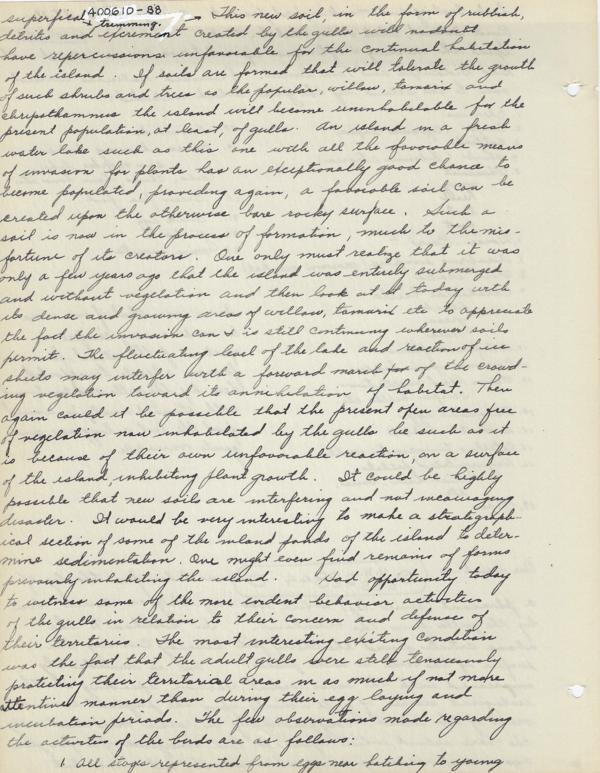 1400610-88
superficial trimming. - This new soil, in the form of rubbish,
detritis and excrement created by the gulls will no doubt
have repercussions unfavorable for the continual habitation
of the island. If soils are formed that will tolerate the growth
of such shrubs and trees as the popular, willow, tamarix and
chrysothamnus the island will become uninhabitable for the
present population, at least, of gulls. An island in a fresh
water lake such as this one with all the favorable means
of invasion for plants has an exceptionally good chance to
become populated, providing again, a favorable soil can be
created upon the otherwise bare rocky surface. Such a
soil is now in the process of formation, much to the mis-
fortune of its creators. One only must realize that it was
only a few years ago that the island was entirely submerged
and without vegetation and then look at it today with
its dense and growing areas of willow, tamarix etc to appreciate
the fact the invasion can & is still continuing wherever soils
permit. The fluctuating level of the lake and reaction of ice
sheets may interfer with a forward march for of the crowd-
ing vegetation toward its annehilation of habitat. Then
again could it be possible that the present open areas free
of vegetation now inhabitated by the gulls be such as it
is because of their own unfavorable reaction, on a surface
of the island, inhibiting plant growth. It could be highly
possible that new soils are interfering and not incouraging
disaster. It would be very interesting to make a stratigraph-
ical section of some of the inland ponds of the island to deter-
mine sedimentation. One might even find remains of forms
prevously inhabiting the island. Had opportunity today
to witness some of the more evident behavior activities
of the gulls in relation to their concern and defense of
their territories. The most interesting existing condition
was the fact that the adult gulls were still tenaciously
protecting their territorial areas in as much if not more
attentive manner than during their egg laying and
incubation periods. The few observations made regarding
the activities of the birds are as follows:
1. All stages represented from eggs near hatching to young